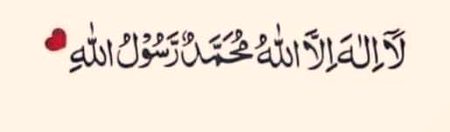 لَآ اِلٰهَ اِلَّا اللهُ مُحَمَّدٌ رَّسُوْلُ اللهِ